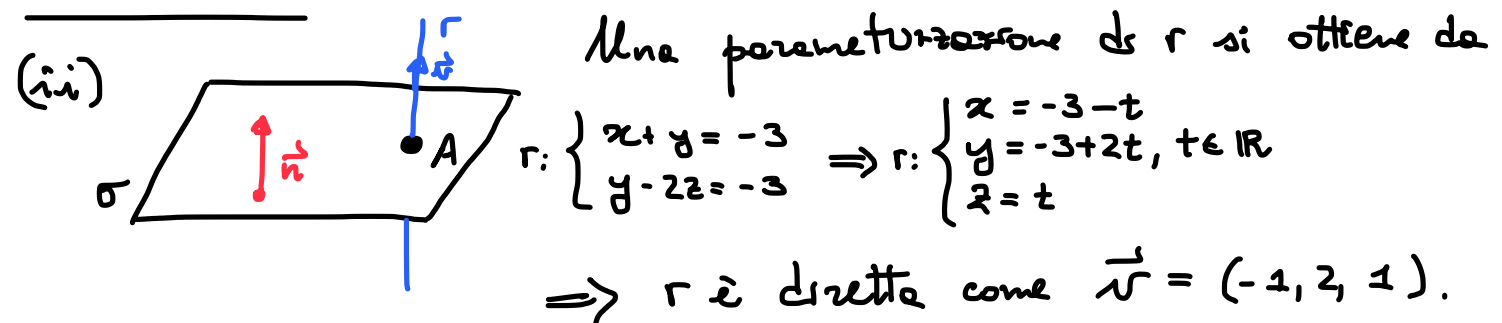 (ii)
r
v⃗
n⃗
A
σ
Una parametrizzazione di r si ottiene da
r: { x + y = -3
y - 2z = -3
⟹ r: { x = -3 - t
y = -3 + 2t, t ∈ ℝ
z = t
⟹ r è diretta come v⃗ = (-1, 2, 1).